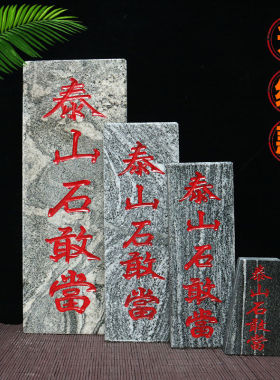 泰山石敢當
泰山石敢當
泰山石敢當
泰山石敢當